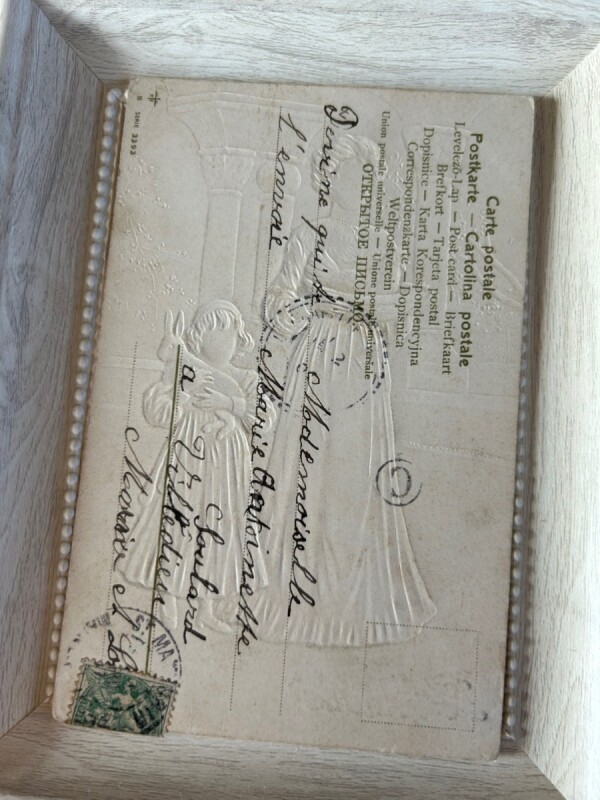 Carte postale
Postkarte — Cartolina postale
Levelező-Lap — Post card — Briefkaart
Brefkort — Tarjeta postal
Dopisnice — Karta Korespondencyjna
Correspondenzkarte — Dopisnica
Weltpostverein
ОТКРЫТОЕ ПИСЬМО.
Union postale universelle — Unione postale universale
Devine qui te
l'envoie
Mademoiselle
Marie Antoinette
Soulard
a Villedieu
Maine et L
SERIE 2393
MA